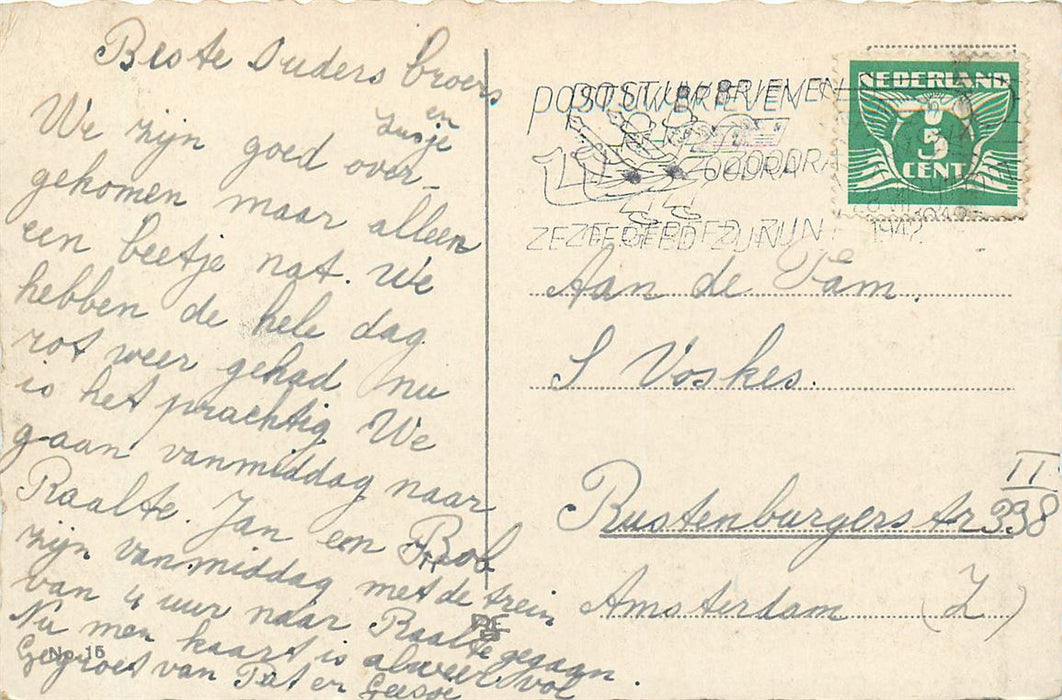 Beste Ouders broers
en
Zusje
We zijn goed over-
gekomen maar alleen
een beetje nat. We
hebben de hele dag
rot weer gehad nu
is het prachtig We
gaan vanmiddag naar
Raalte. Jan en Bob
zijn vanmiddag met de trein
van 4 uur naar Raalte gegaan.
Nu men kaart is alweer vol
Gegroet van en
No. 15
POST UW BRIEVEN
ZOODRA
ZE GEREED ZIJN
1942
NEDERLAND
5
CENT
Aan de Fam.
S Voskes.
II
Rustenburgerstr 338
Amsterdam (Z)